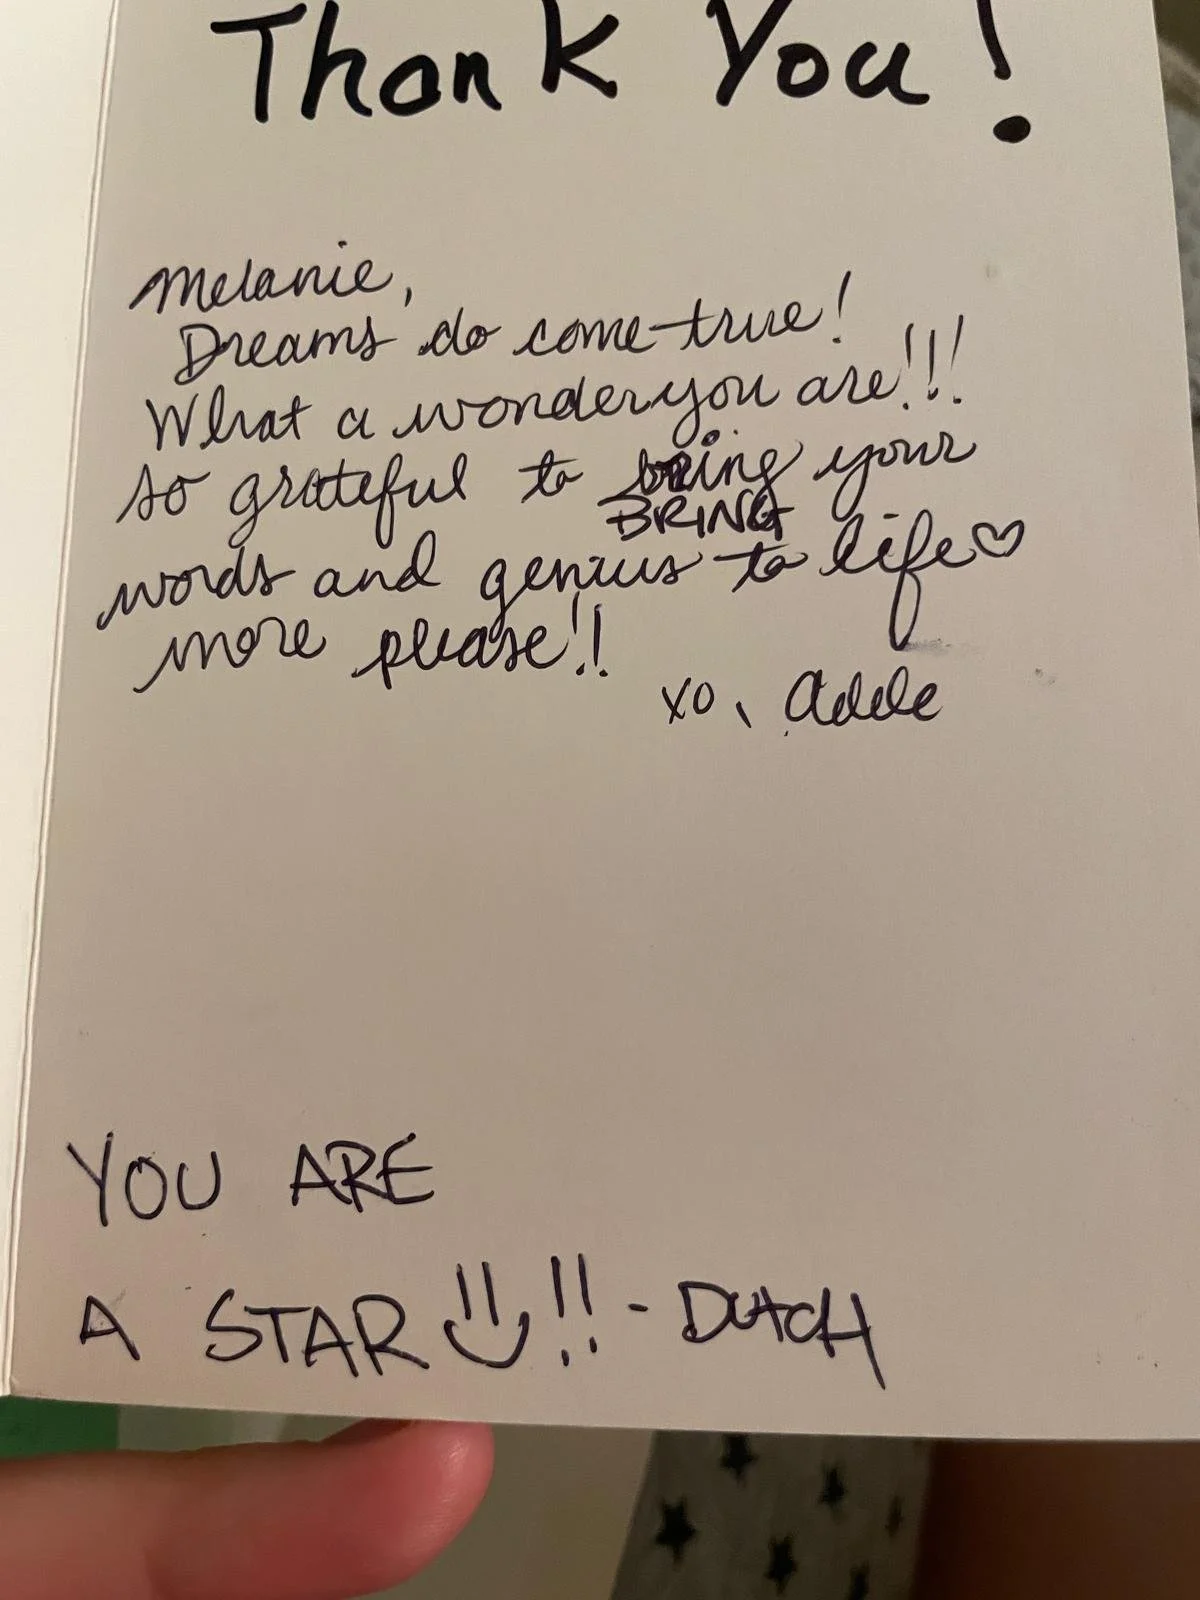 Thank You!
Melanie,
Dreams do come true!
What a wonder you are!!!
so grateful to bring your
BRING
words and genius to life♡
more please!!
xo, Adele
YOU ARE
A STAR !! - DUTCH